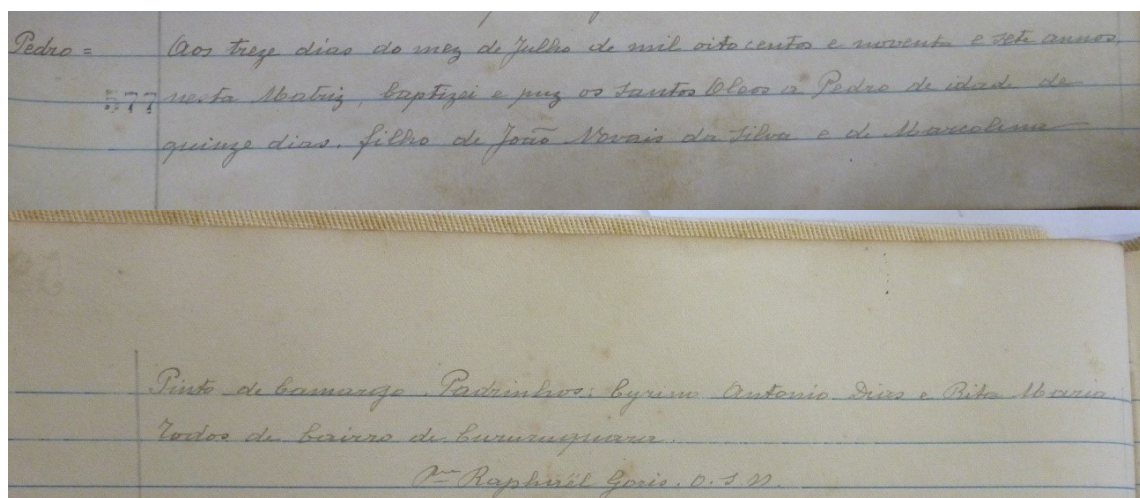 Pedro = Aos treze dias do mez de Julho de mil oito centos e noventa e sete annos,
nesta Matriz, baptizei e puz os Santos Oleos a Pedro de idade de
quinze dias, filho de João Novais da Silva e de Marcolina
Pinto de Camargo. Padrinhos: Cyrino Antonio Dias e Rita Maria
Todos de bairro de Cururuquara.
Raphaël Goris. O. S. N.